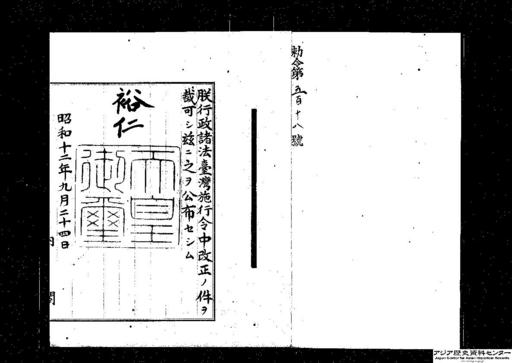 勅令第五百十八號
朕行政諸法臺灣施行令中改正ノ件ヲ
裁可シ玆ニ之ヲ公布セシム
裕仁
天皇御璽
昭和十二年九月二十四日
内閣
アジア歴史資料センター
Japan Center for Asian Historical Records